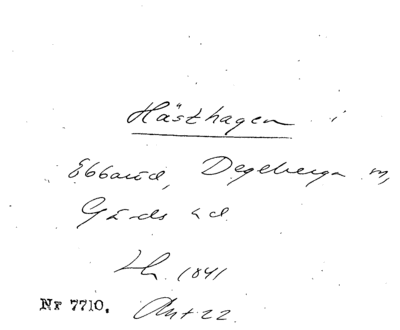 Hästhagen i
Ebbarud, Degeberga m,
Gärds hd
Lh. 1841
Nr 7710. Akt 22.